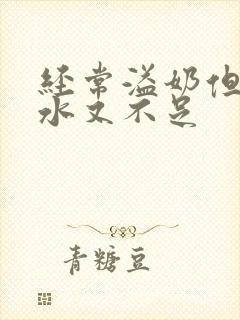 经常溢奶但
水又不足
青糖豆